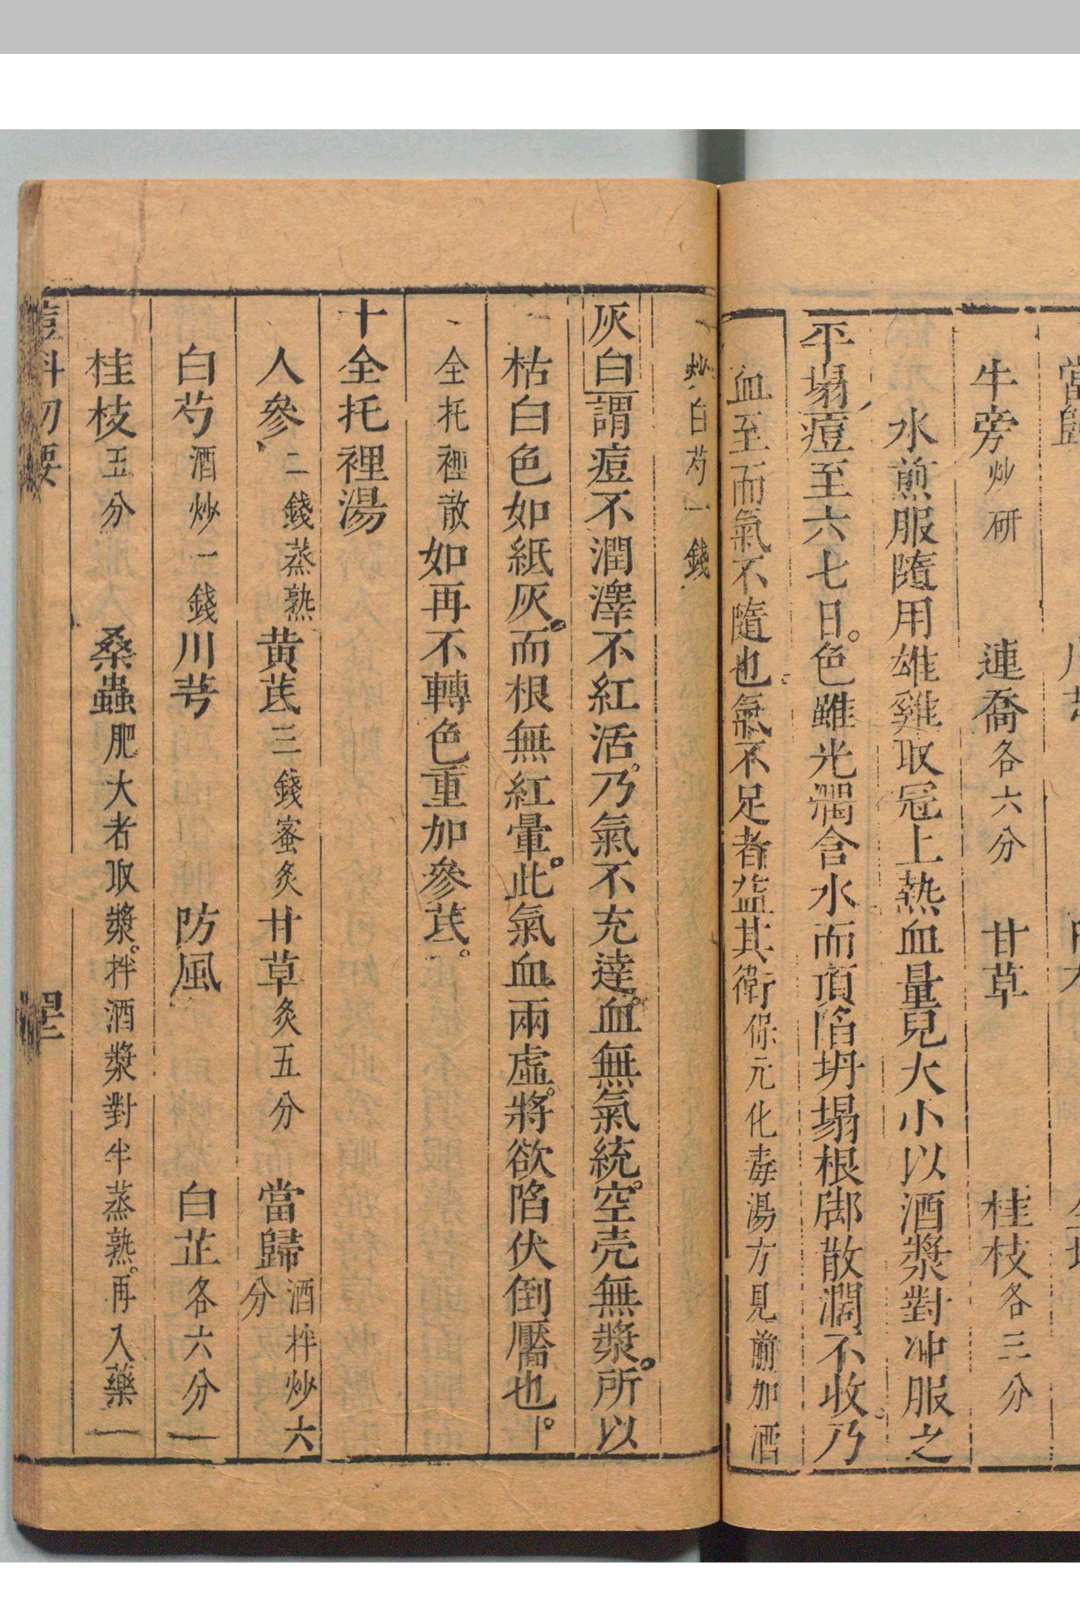 當歸
牛旁炒研 連喬各六分 甘草 桂枝各三分
水煎服隨用雄雞取冠上熱血量兒大小以酒漿對冲服之
平塌痘至六七日色雖光潤含水而頂陷坍塌根脚散濶不收乃
血至而氣不隨也氣不足者益其衛保元化毒湯方見前加酒
炒白芍一錢
灰白謂痘不潤澤不紅活乃氣不充達血無氣統空壳無漿所以
枯白色如紙灰而根無紅暈此氣血兩虛將欲陷伏倒靨也
全托裡散如再不轉色重加參茋
十全托裡湯
人參二錢蒸熟 黄茋三錢蜜炙 甘草炙五分 當歸酒拌炒六分
白芍酒炒一錢 川芎 防風 白芷各六分
桂枝五分 桑蟲肥大者取漿拌酒漿對半蒸熟再入藥
痘科切要